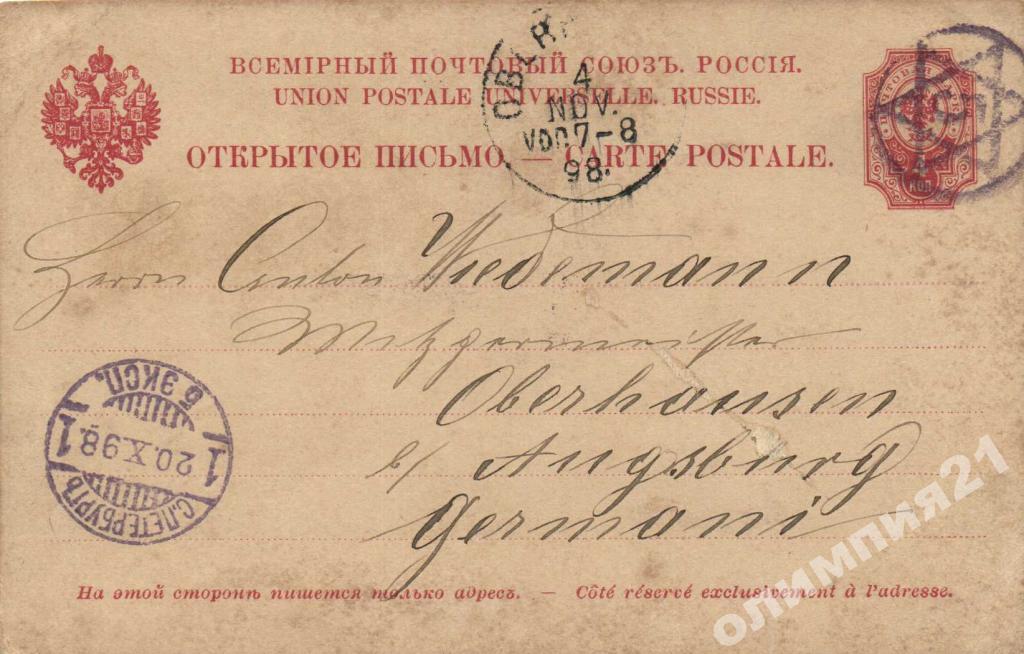 ВСЕМІРНЫЙ ПОЧТОВЫЙ СОЮЗЪ. РОССІЯ.
UNION POSTALE UNIVERSELLE. RUSSIE.
ОТКРЫТОЕ ПИСЬМО. — CARTE POSTALE.
4
NOV.
7-8
98.
4
КОП
Herrn Anton Wiedemann
Metzgermeister
Oberhausen
b/ Augsburg
Germani
5 ЭКСП.
1 20.X.98. 1
С.ПЕТЕРБУРГЪ
На этой сторонѣ пишется только адресъ. — Côté réservé exclusivement à l'adresse.
олимпия21